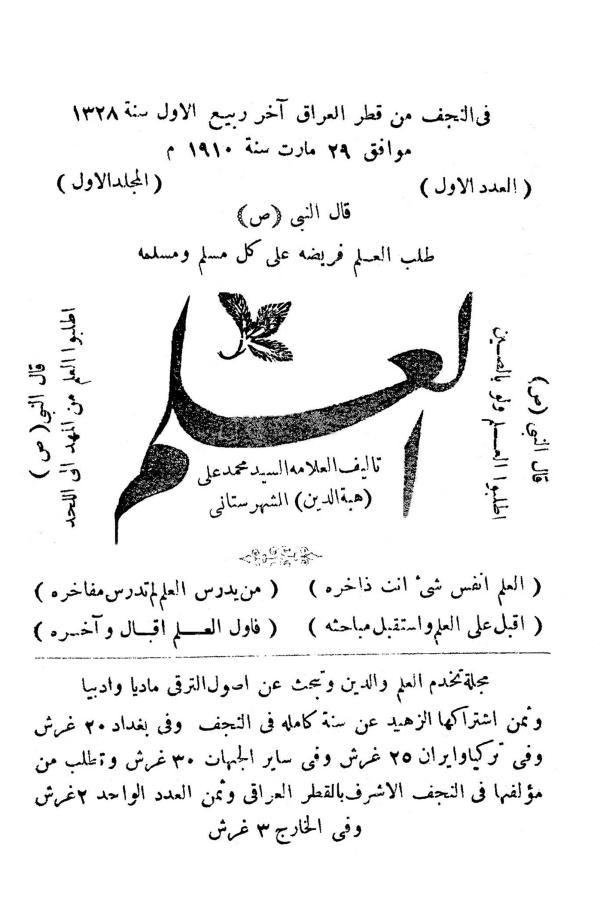 فى النجف من قطر العراق آخر ربيع الاول سنة ١٣٢٨
موافق ٢٩ مارت سنة ١٩١٠ م
( العدد الاول ) ( المجلد الاول )
قال النبى (ص)
طلب العلم فريضه على كل مسلم ومسلمه
قال النبى (ص)
اطلبوا العلم ولو بالصين
العلم
قال النبى (ص)
اطلبوا العلم من المهد الى اللحد
تاليف العلامه السيد محمد على
(هبة الدين) الشهرستانى
( العلم انفس شئ انت ذاخره ) ( من يدرس العلم لم تدرس مفاخره )
( اقبل على العلم واستقبل مباحثه ) ( فاول العلم اقبال وآخره )
مجلة تخدم العلم والدين وتبحث عن اصول الترقى ماديا وادبيا
وثمن اشتراكها الزهيد عن سنة كامله فى النجف وفى بغداد ٢٠ غرش
وفى تركيا وايران ٢٥ غرش وفى ساير الجهات ٣٠ غرش وتطلب من
مؤلفها فى النجف الاشرف بالقطر العراقى وثمن العدد الواحد ٢ غرش
وفى الخارج ٣ غرش